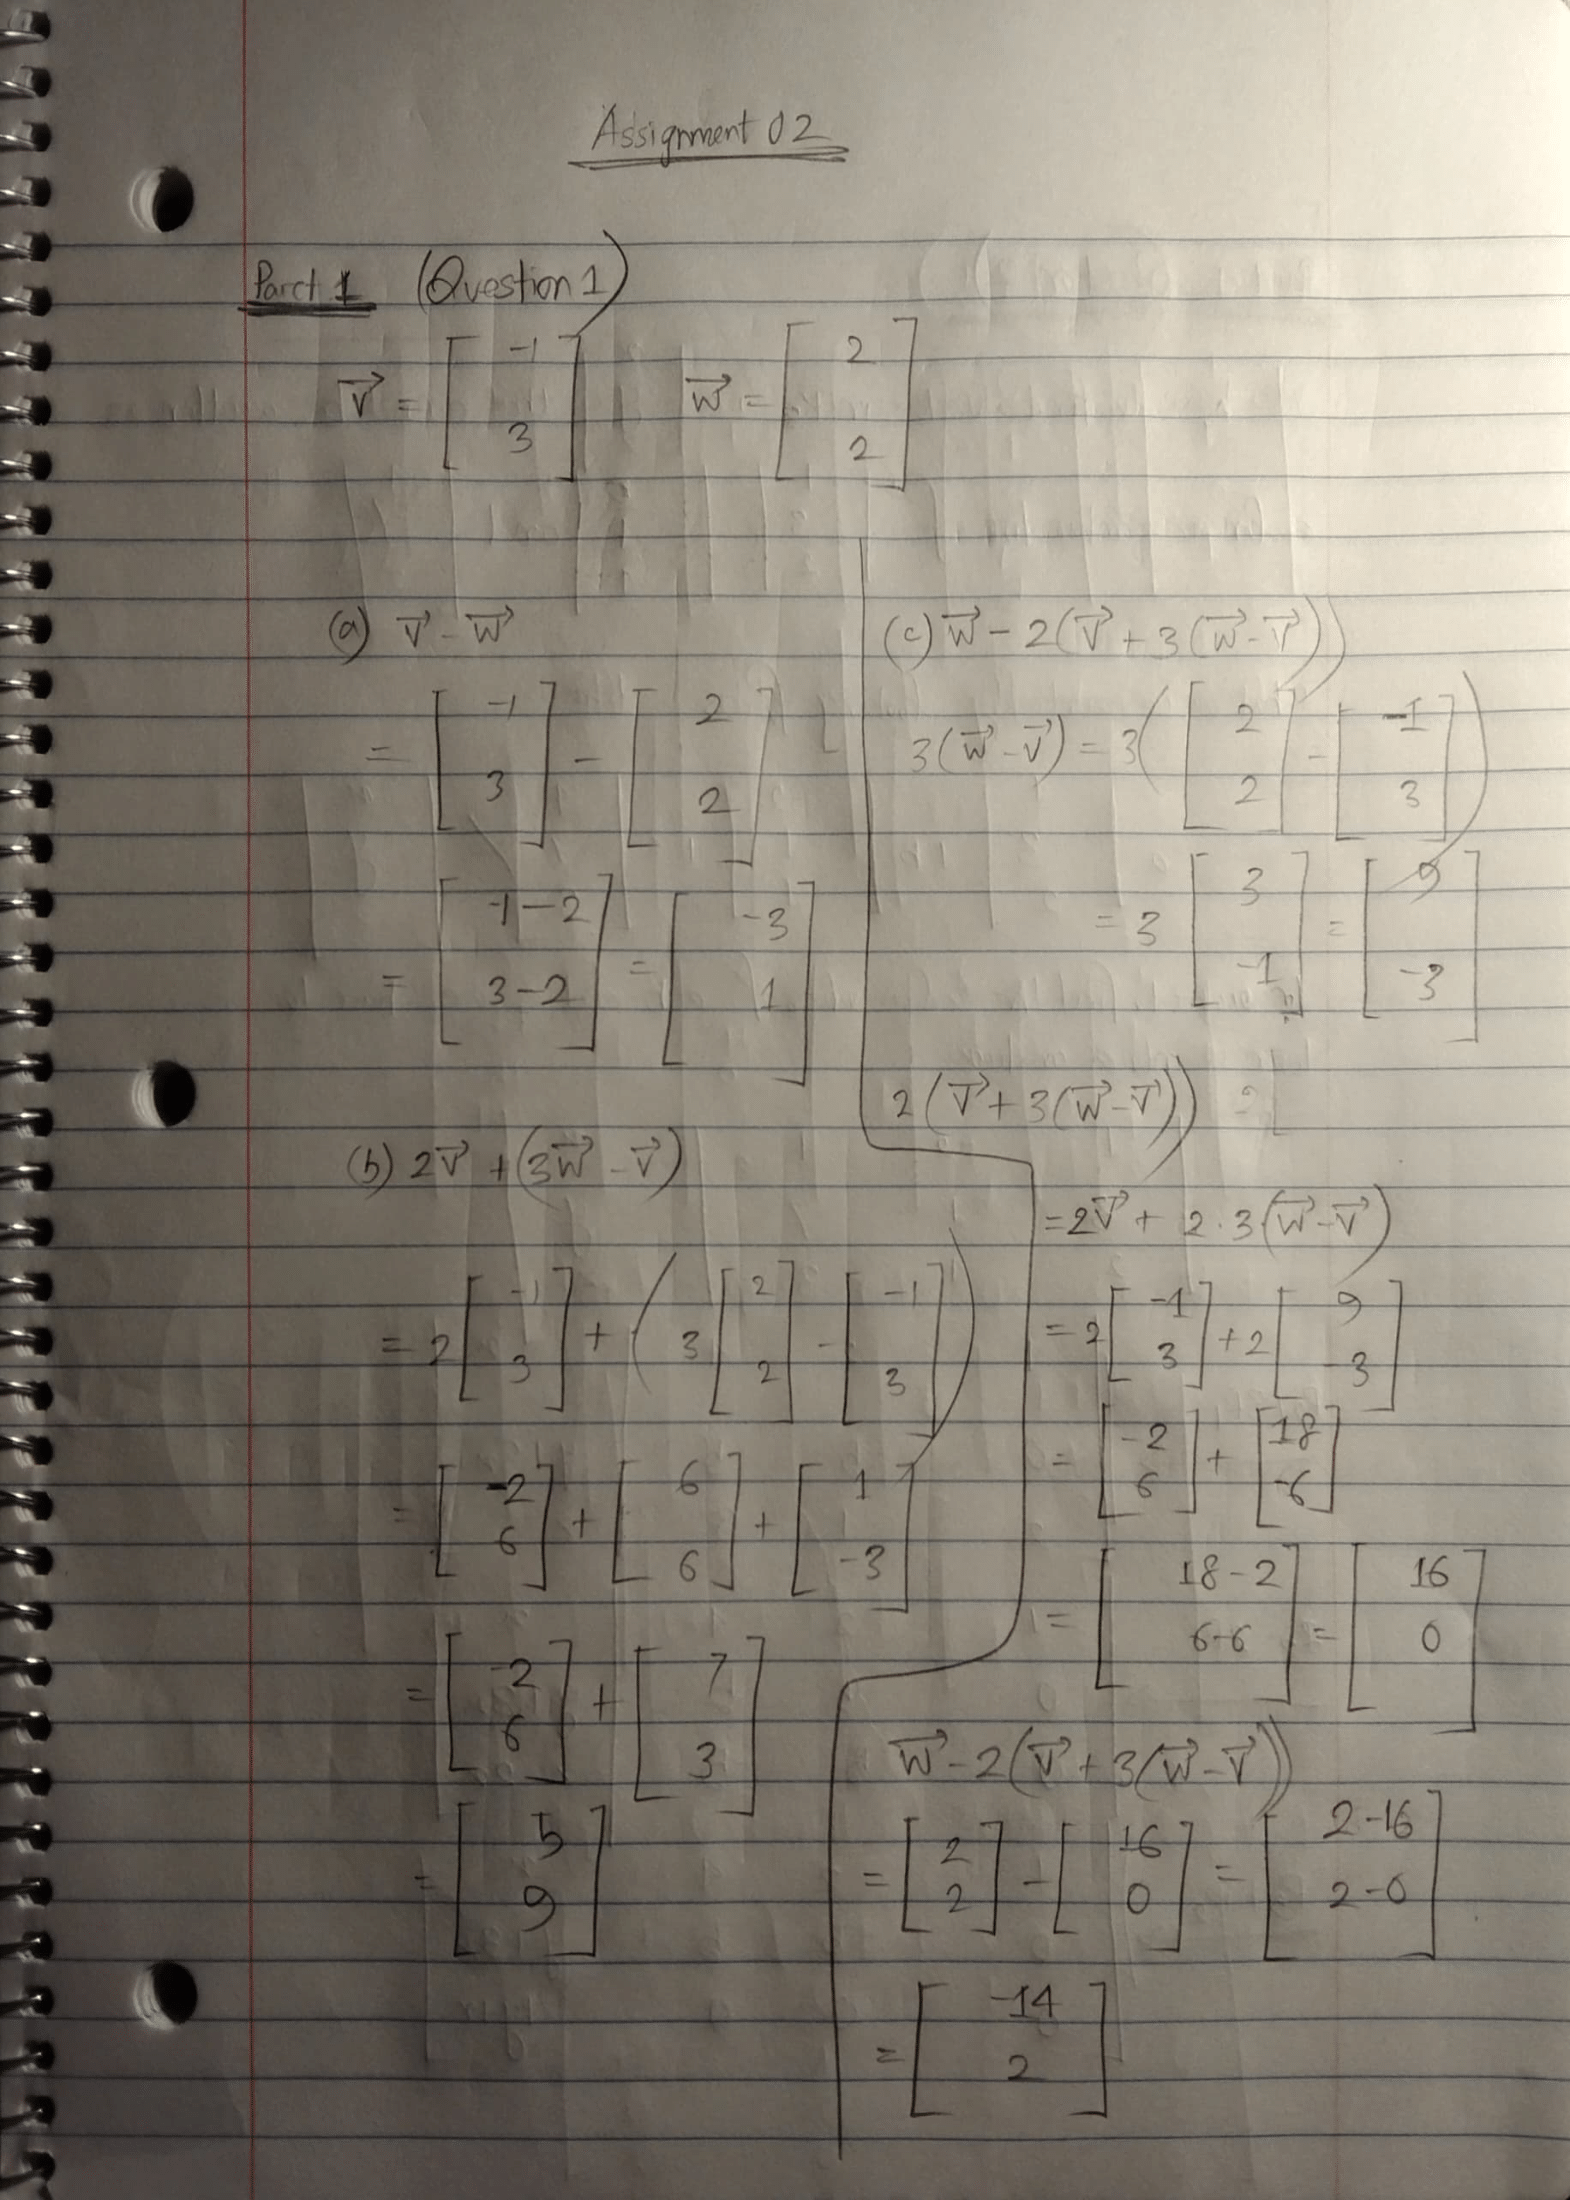 Assignment 02
Part 1 (Question 1)
v⃗ = [-1; 3] w⃗ = [2; 2]
(a) v⃗ - w⃗
= [-1; 3] - [2; 2]
= [-1-2; 3-2] = [-3; 1]
(b) 2v⃗ + (3w⃗ - v⃗)
= 2[-1; 3] + (3[2; 2] - [-1; 3])
= [-2; 6] + [6; 6] + [1; -3]
= [-2; 6] + [7; 3]
= [5; 9]
(c) w⃗ - 2(v⃗ + 3(w⃗ - v⃗))
3(w⃗ - v⃗) = 3([2; 2] - [-1; 3])
= 3[3; -1] = [9; -3]
2(v⃗ + 3(w⃗ - v⃗))
= 2v⃗ + 2·3(w⃗ - v⃗)
= 2[-1; 3] + 2[9; -3]
= [-2; 6] + [18; -6]
= [18-2; 6-6] = [16; 0]
w⃗ - 2(v⃗ + 3(w⃗ - v⃗))
= [2; 2] - [16; 0] = [2-16; 2-0]
= [-14; 2]